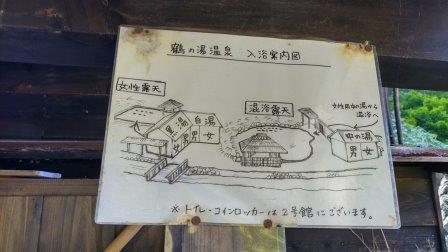 鶴の湯温泉 入浴案内図
女性露天
混浴露天
女性用中の湯から
混浴へ
黒湯
女 男
白湯
男 女
中の湯
男 女
※トイレ・コインロッカーは2号館にございます。